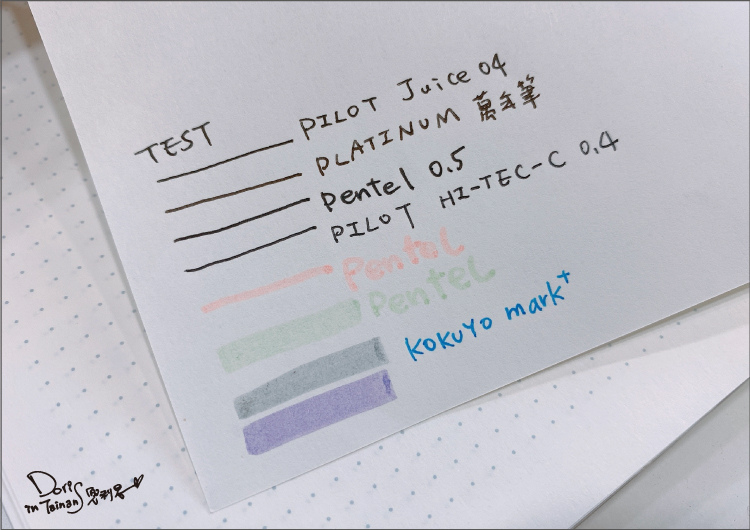 TEST
PILOT Juice 04
PLATINUM 萬年筆
Pentel 0.5
PILOT HI-TEC-C 0.4
Pentel
Pentel
KOKUYO mark+
Doris
in Tainan